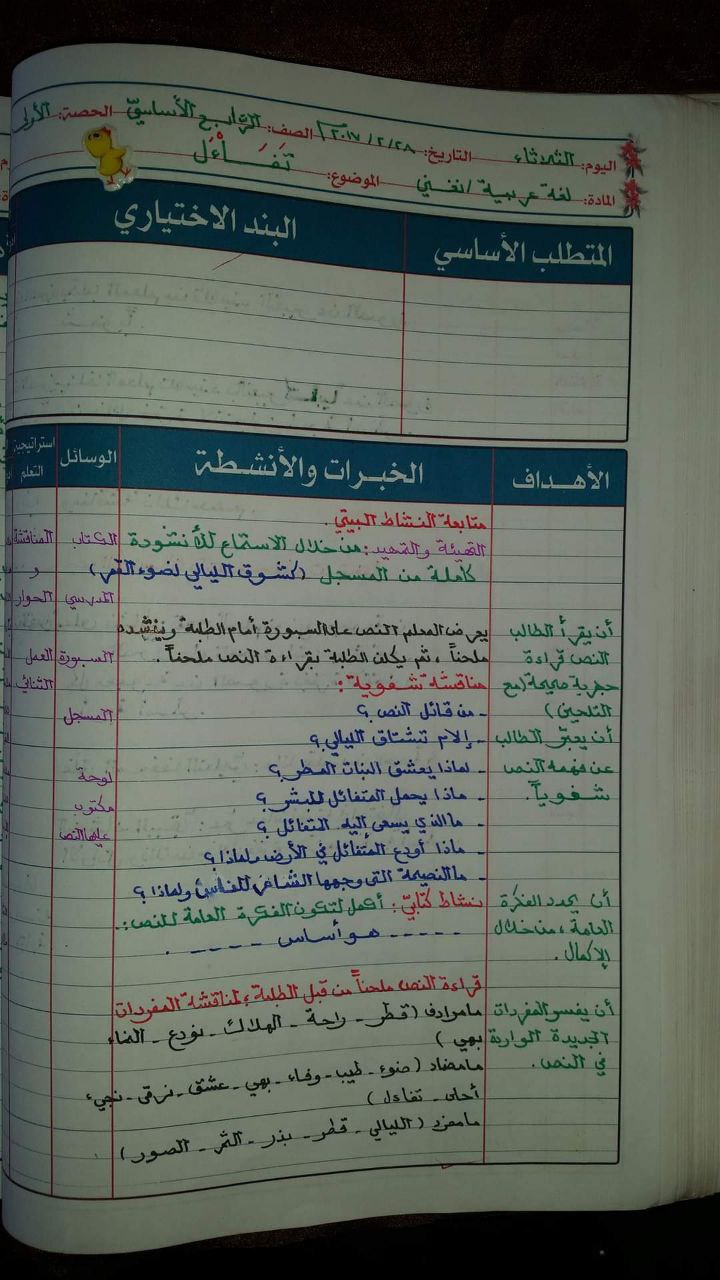 اليوم: الثلاثاء التاريخ: ٢٠١٧/٢/٢٨ الصف: الرابع الأساسيّ الحصة: الأولى
المادة: لغة عربية / نغني الموضوع: تَفَـــاْءَل
المتطلب الأساسي البند الاختياري
الأهـداف الخبـرات والأنشـطة الوسائل استراتيجية التعلم
متابعة النشاط البيتي.
التهيئة والتمهيد: من خلال الاستماع للأنشودة الكتاب المناقشة
كاملة من المسجل (كشوق الليالي لضوء القمر) المدرسي و الحوار
أن يقرأ الطالب يعرض المعلم النص على السبورة أمام الطلبة وينشده
النص قراءة ملحناً، ثم يكلف الطلبة بقراءة النص ملحناً. السبورة العمل
جهرية صحيحة (مع مناقشة شفوية: الثنائي
التلحين) - من قائل النص؟ المسجل
أن يعبّر الطالب - إلام تشتاق الليالي؟
عن فهمه النص - لماذا يعشق النبات المطر؟ لوحة
شفوياً. - ماذا يحمل المتفائل للبشر؟ مكتوب
- ما الذي يسعى إليه المتفائل؟ عليها النص
- ماذا أودع المتفائل في الأرض ولماذا؟
- ما النصيحة التي وجهها الشاعر للناس ولماذا؟
أن يحدد الفكرة نشاط كتابيّ: أكمل لتكون الفكرة العامة للنص:
العامة، من خلال ----- هو أساس ----.
الإكمال.
قراءة النص ملحناً من قبل الطلبة، لمناقشة المفردات
أن يفسر المفردات ما مرادف (قطر - راحة - الهلاك - نودع - الفناء
الجديدة الواردة بهي)
في النص. ما مضاد (ضوء - طيب - وفاء - بهي - عشق - نرقى - نجيء
أحلى - تفاءل)
ما مفرد (الليالي - قطر - بذر - الثمر - الصور)